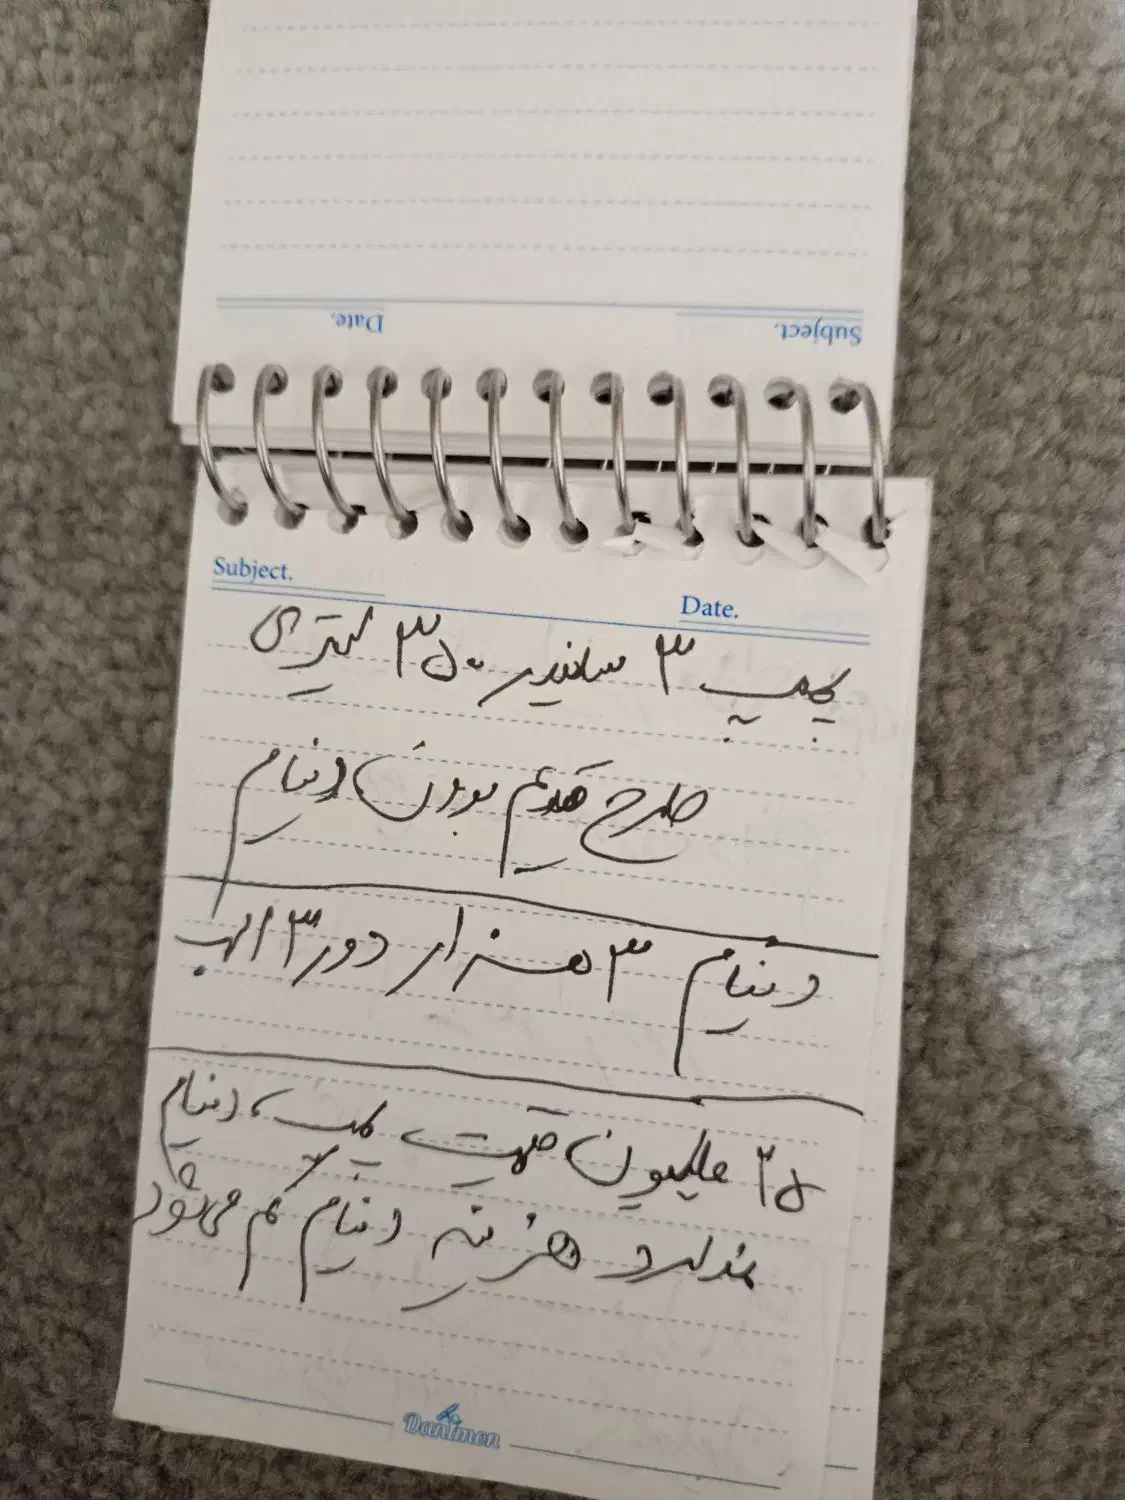 Subject.
Date.
Subject.
Date.
پمپ ۳ سیلندر ۳۵۰ لیتری
طرح قدیم بدون دینام
دینام ۳ هزار دور ۳ اسب
۲۵ ملیون قیمت پمپ، دینام
ندارد هزینه دینام کم میشود
Danimon